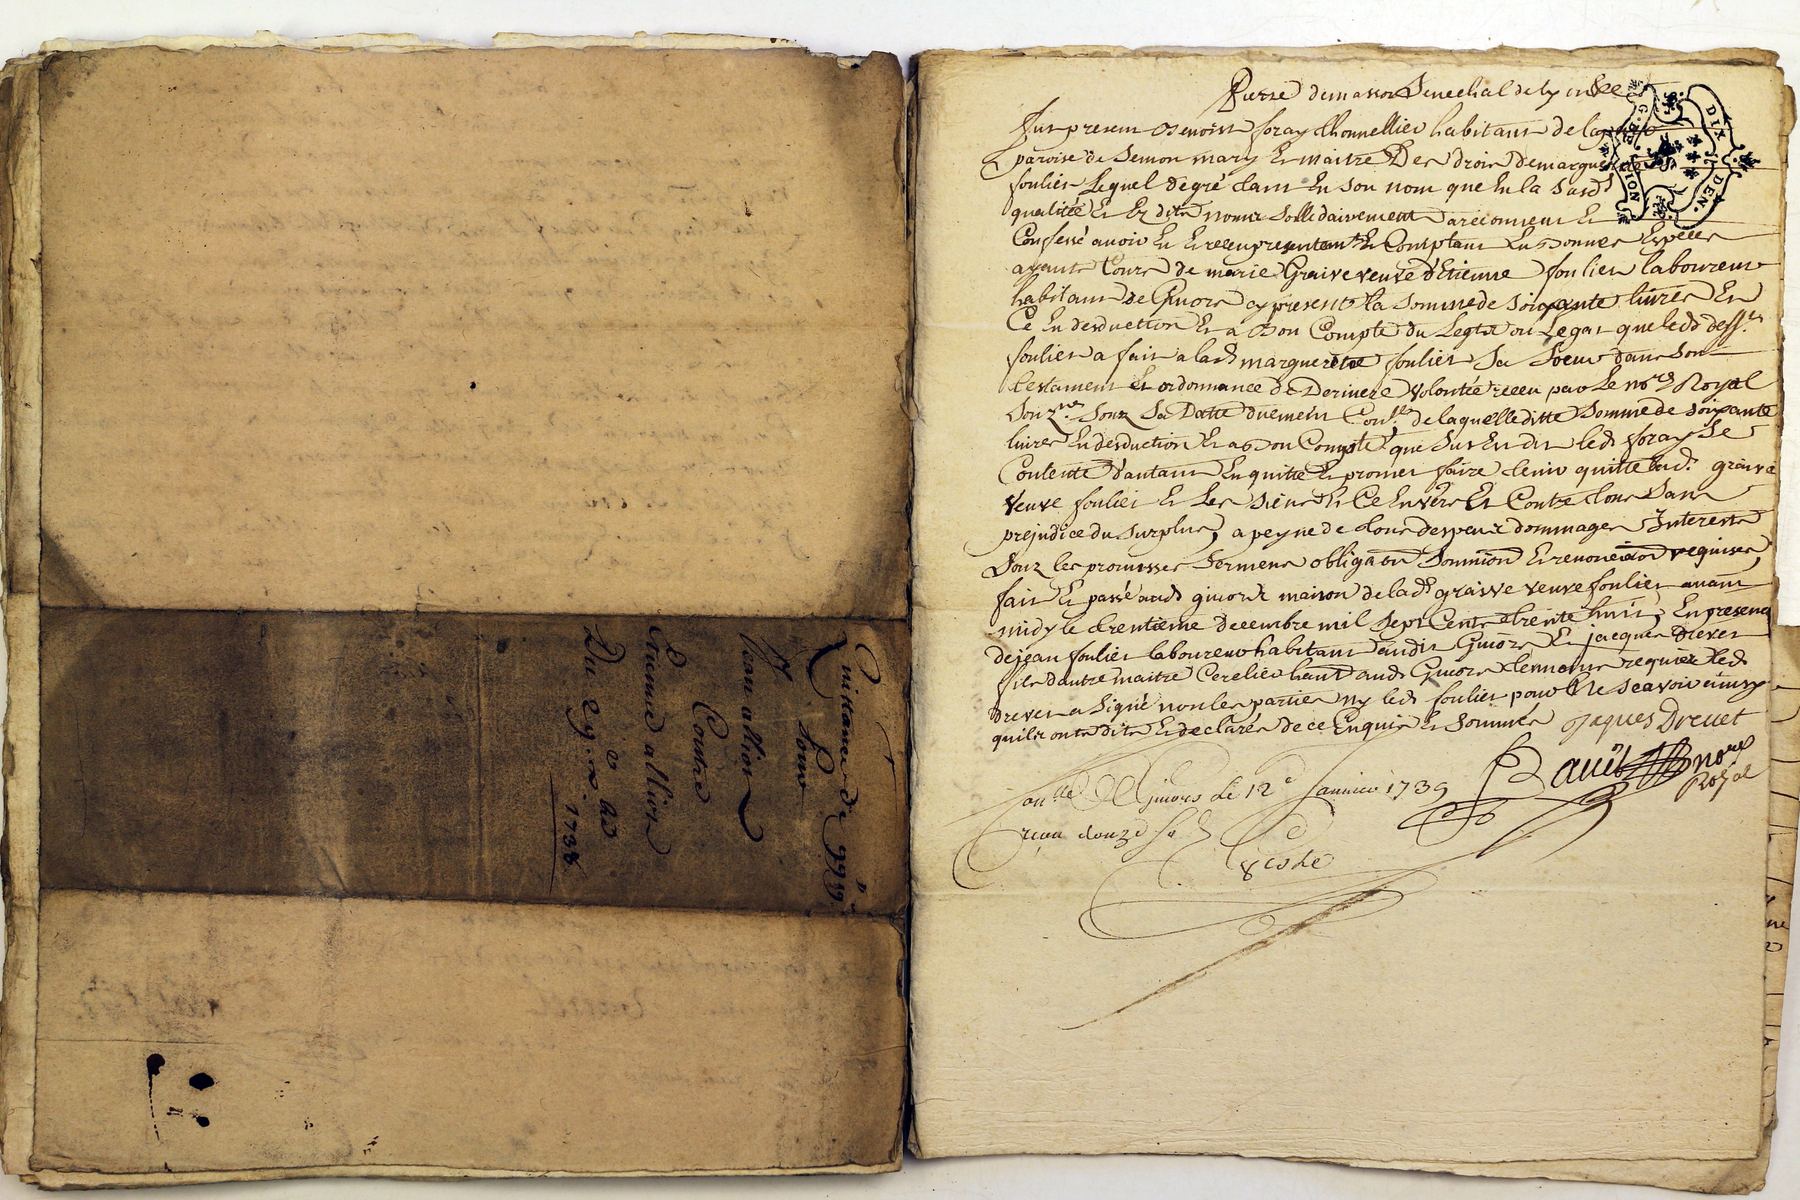 Quittance de
pour
Jean allior
Contre
Etienne allior
Du 29e xbre
1738
G. DE LION
DIX DEN.
fut present Benoist foray Thonnellier habitant de la
paroise de Semon mary Et maitre Des droit de marguerite
foulier Lequel de gré tant En son nom que En la Susd.
qualitée Et Et dits noms sollidairement a reconneu Et
Confessé avoir Eu Et receu presentement Et Comptant En Bonnes Especes
ayants Cours de marie Graive veuve d'Etienne foulier laboureur
habitant de Givors cy presente la somme de soixante livres Et
Ce En desduction Et a Bon Compte du Legat que led deff.t
foulier a fait a lad marguerite foulier Sa Soeur dans Son
testament Et ordonnance de Derniere Volontée receu par Le no.re Royal
Souz.né Souz Sa Datte duement Con.lé de laquelle ditte Somme de soixante
livres En desduction Et a Bon Compte que Sus Est dit led foray Se
Contente d'autant En quitte Et promet faire tenir quitte lad. graive
veuve foulier Et Les Siens Et Ce Envers Et Contre tous Sans
prejudice du Surplus, a peyne de tous despens dommages Interests
Souz les promesses Serments obligaon Soumion Et renonciaon requises,
fait Et passé aud givors maison de lad. graive veuve foulier avant
midy le trentieme decembre mil Sept Cents trente huit, En presence
de jean foulier laboureur habitant audit Givors Et jacques drevet
fils d'autre maitre Cerclier habt. aud. Givors temoins requis led.
drevet a Signé non les parties ny led. foulier pour Ne Scavoir
quils ont dit Et declaré de ce Enquis Et Sommés Jaques Drevet
no.re
Royal
Con.llé a Givors le 12e Janvier 1739
reçu douze s.